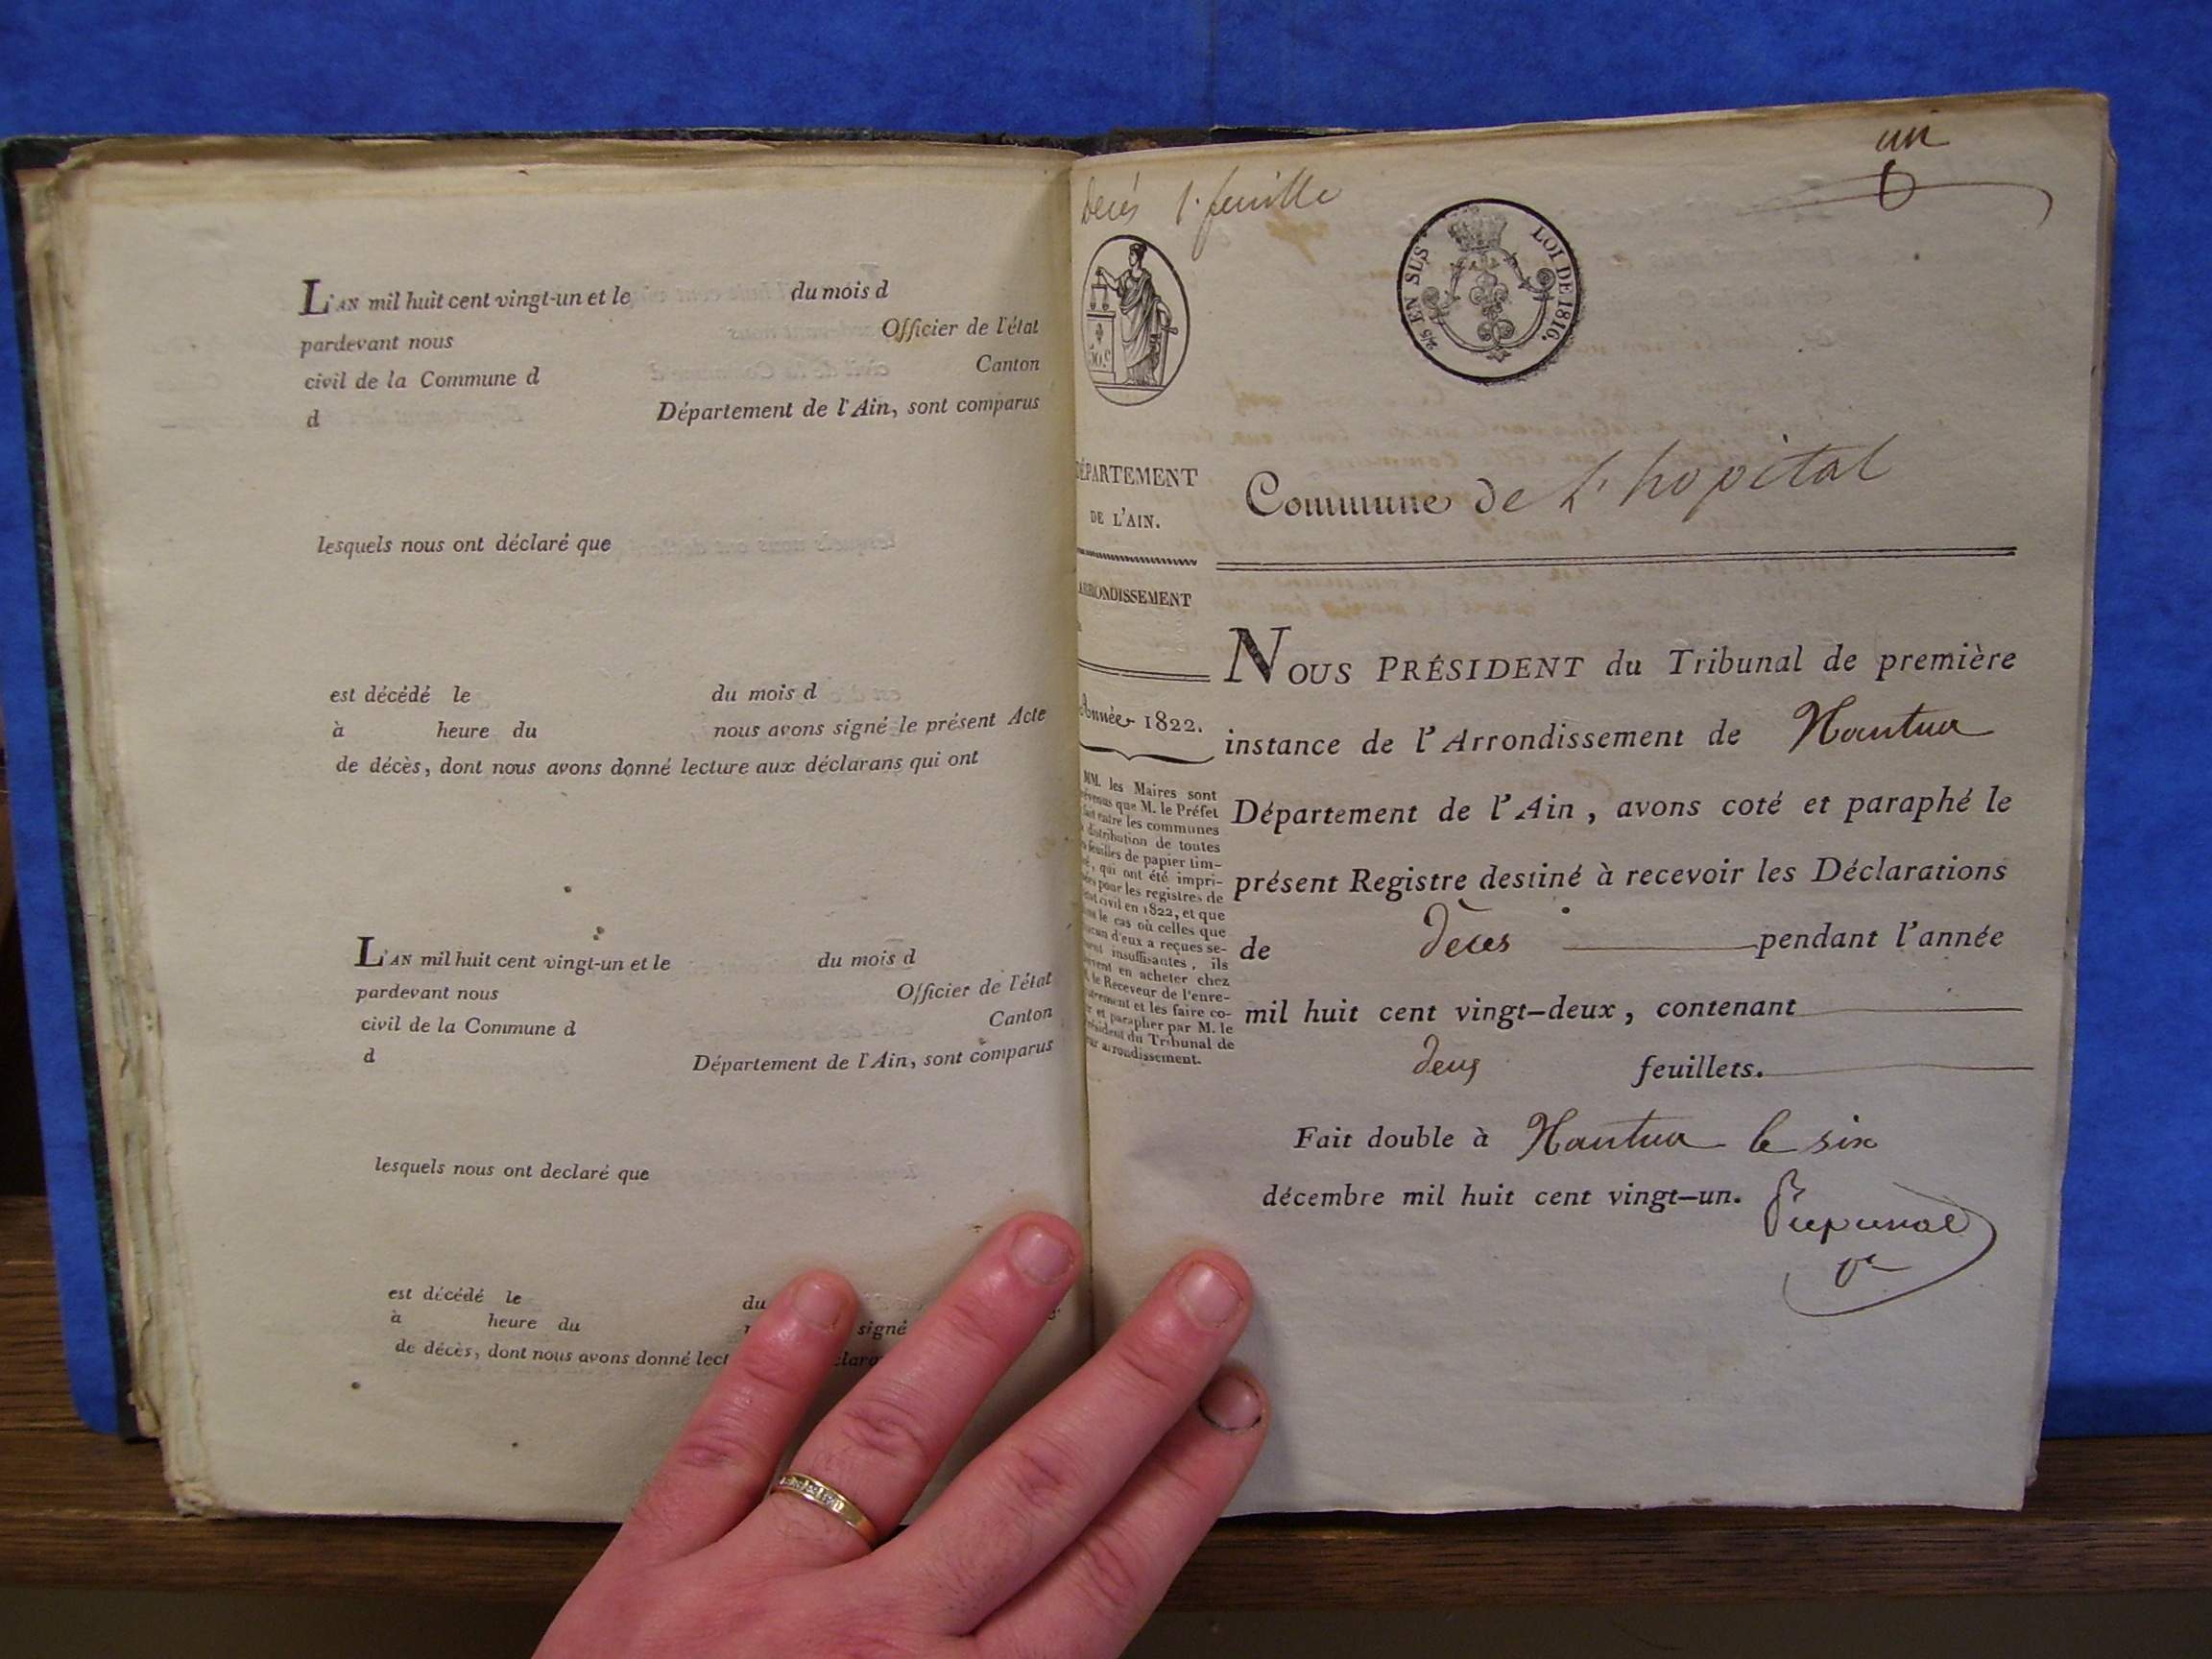 L'AN mil huit cent vingt-un et le du mois d
pardevant nous Officier de l'état
civil de la Commune d Canton
d Département de l'Ain, sont comparus
lesquels nous ont déclaré que
est décédé le du mois d
à heure du nous avons signé le présent Acte
de décès, dont nous avons donné lecture aux déclarans qui ont
L'AN mil huit cent vingt-un et le du mois d
pardevant nous Officier de l'état
civil de la Commune d Canton
d Département de l'Ain, sont comparus
lesquels nous ont declaré que
est décédé le du
à heure du signé
de décès, dont nous avons donné
un
Decés 1. feuille
2/5 EN SUS
LOI DE 1816.
50.c
DÉPARTEMENT
DE L'AIN.
ARRONDISSEMENT
Année 1822.
MM. les Maires sont
prévenus que M. le Préfet
fait entre les communes
distribution de toutes
feuilles de papier tim-
, qui ont été impri-
pour les registres de
civil en 1822, et que
le cas où celles que
d'eux a reçues se-
insuffisantes, ils
en acheter chez
le Receveur de l'enre-
et les faire co-
et parapher par M. le
Président du Tribunal de
arrondissement.
Commune de L'hopital
NOUS PRÉSIDENT du Tribunal de première
instance de l'Arrondissement de Nantua
Département de l'Ain, avons coté et paraphé le
présent Registre destiné à recevoir les Déclarations
de Décès pendant l'année
mil huit cent vingt-deux, contenant
deux feuillets.
Fait double à Nantua le six
décembre mil huit cent vingt-un.